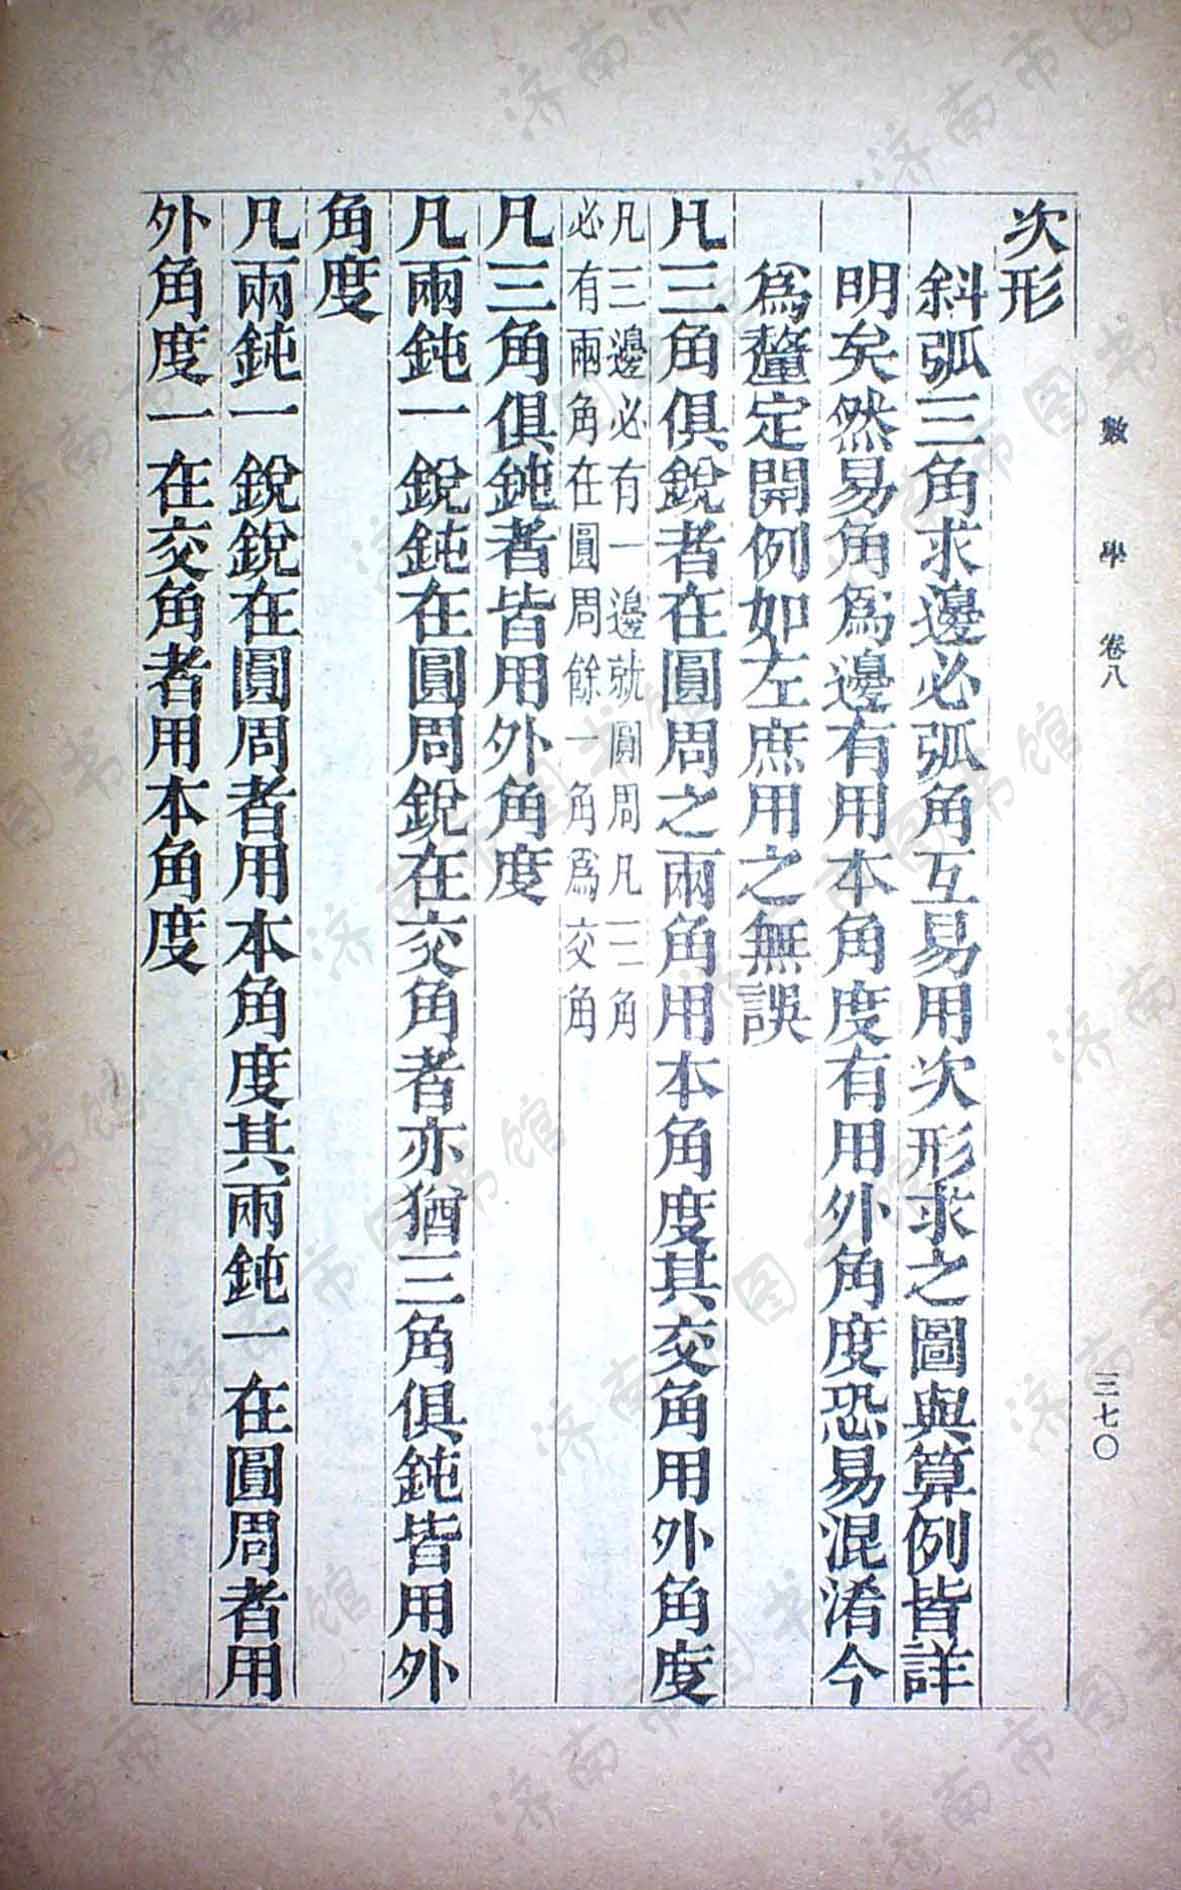 數學 卷八 三七〇
次形
斜弧三角求邊必弧角互易用次形求之圖與算例皆詳
明矣然易角爲邊有用本角度有用外角度恐易混淆今
爲釐定開例如左庶用之無誤
凡三角俱銳者在圓周之兩角用本角度其交角用外角度
凡三邊必有一邊就圓周凡三角
必有兩角在圓周餘一角爲交角
凡三角俱鈍者皆用外角度
凡兩鈍一銳鈍在圓周銳在交角者亦猶三角俱鈍皆用外
角度
凡兩鈍一銳銳在圓周者用本角度其兩鈍一在圓周者用
外角度一在交角者用本角度
济南市图书馆